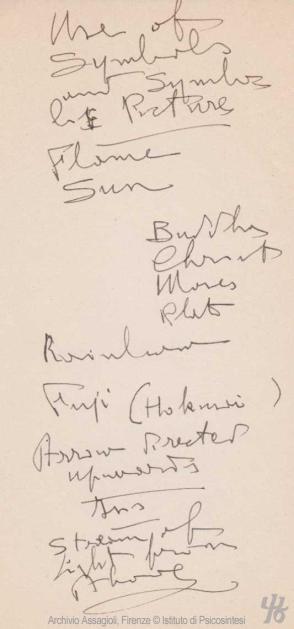 Use of
Symbols
and Symbo
lic Pictures
Flame
Sun
Buddha
Christ
Moses
Plato
Rainbow
Fuji (Hokusai)
Arrow directed
upwards
Stream of
light from
Above
Archivio Assagioli, Firenze © Istituto di Psicosintesi